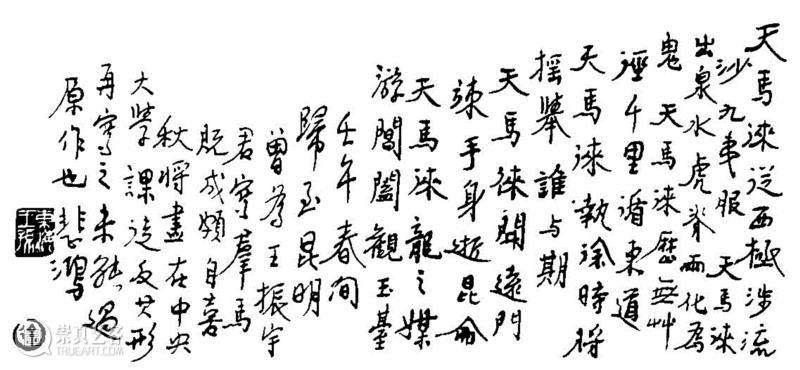 天馬徕從西極涉流
沙九夷服 天馬徕
出泉水虎脊兩化為
鬼 天馬徕歷無艸
逕千里循東道
天馬徕執徐時將
摇舉誰与期
天馬徕開遠門
竦予身逝昆侖
天馬徕龍之媒
游閶闔觀玉臺
壬午春間
歸至昆明
曾為王振宇
君寫羣馬
既成頗自喜
秋將盡在中央
大學課徒反其形
再寫之未能過
原作也 悲鴻
崇真艺客
TRUEART.COM